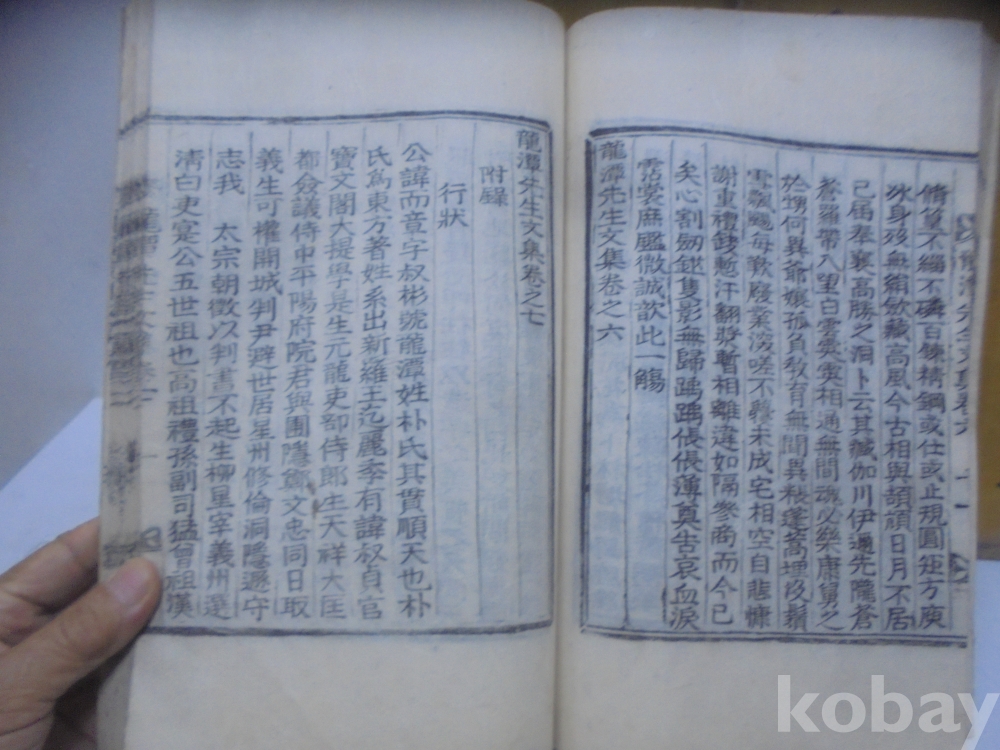 脩篁不緇不磷百鍊精鋼或仕或止規圓矩方庾
氷身歿無絹斂藏高風今古相與頡頏日月不居
已届奉襄高勝之洞卜云其臧伽川伊邇先隴蒼
蒼羅帶入望白雲相通無間魂必樂康舅之
於甥何異爺孃孤負敎育無間異
每歎廢業不成宅相空自悲慷
謝重禮慙汗翻暫相離違如隔參商而今已
矣心割刃鎚隻影無歸踽踽倀倀薄奠告哀血淚
霑裳庶鑑微誠歆此一觴
龍潭先生文集卷之六
龍潭先生文集卷之七
附錄
行狀
公諱而章字叔彬號龍潭姓朴氏其貫順天也朴
氏爲東方著姓系出新羅王迄麗季有諱叔貞官
寶文閣大提學是生元龍吏部侍郞生天祥大匡
都僉議侍中平陽府院君與圃隱鄭文忠同日取
義生可權開城判尹避世居星州修倫洞隱遯守
志我 太宗朝徵以判書不起生柳星宰義州選
淸白吏寔公五世祖也高祖禮孫副司猛曾祖漢
kobay